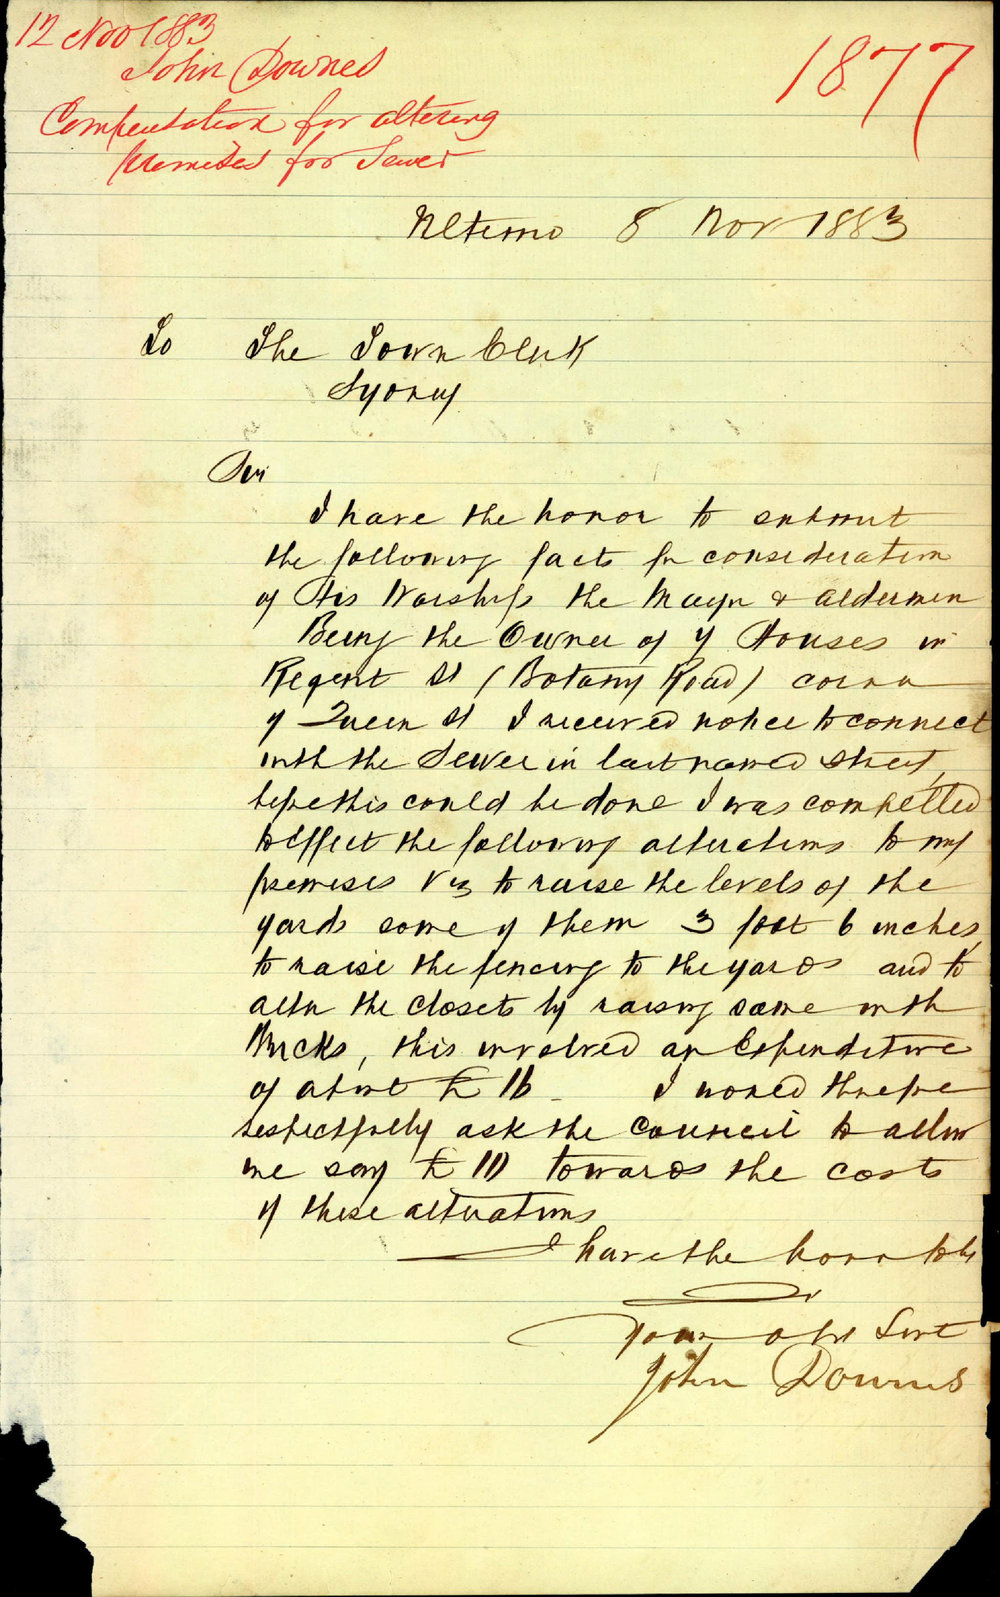 12 Nov 1883
John Downes
Compensation for altering
premises for Sewer
1877
Ultimo 8 Nov 1883
To The Town Clerk
Sydney
Sir
I have the honor to submit
the following facts for consideration
of His Worship the Mayor & aldermen
Being the Owner of 4 Houses in
Regent St (Botany Road) corner
of Queen St I received notice to connect
with the Sewer in last named street,
before this could be done I was compelled
to effect the following alterations to my
premises viz to raise the levels of the
yards some of them 3 foot 6 inches,
to raise the fencing to the yards and to
alter the closets by raising same with
Bricks, this involved an Expenditure
of about £ 16 I would therefore
respectfully ask the Council to allow
me say £ 10 towards the costs
of these alterations
I have the honor to be
Sir
Your obt Servt
John Downes